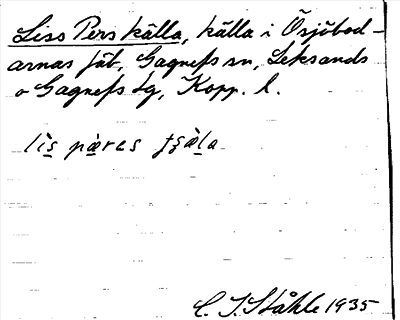 Liss Pers källa, källa i Ösjöbod-
arnas fäb, Gagnefs sn, Leksands
o Gagnefs tg, Kopp. l.
C. I. Ståhle 1935